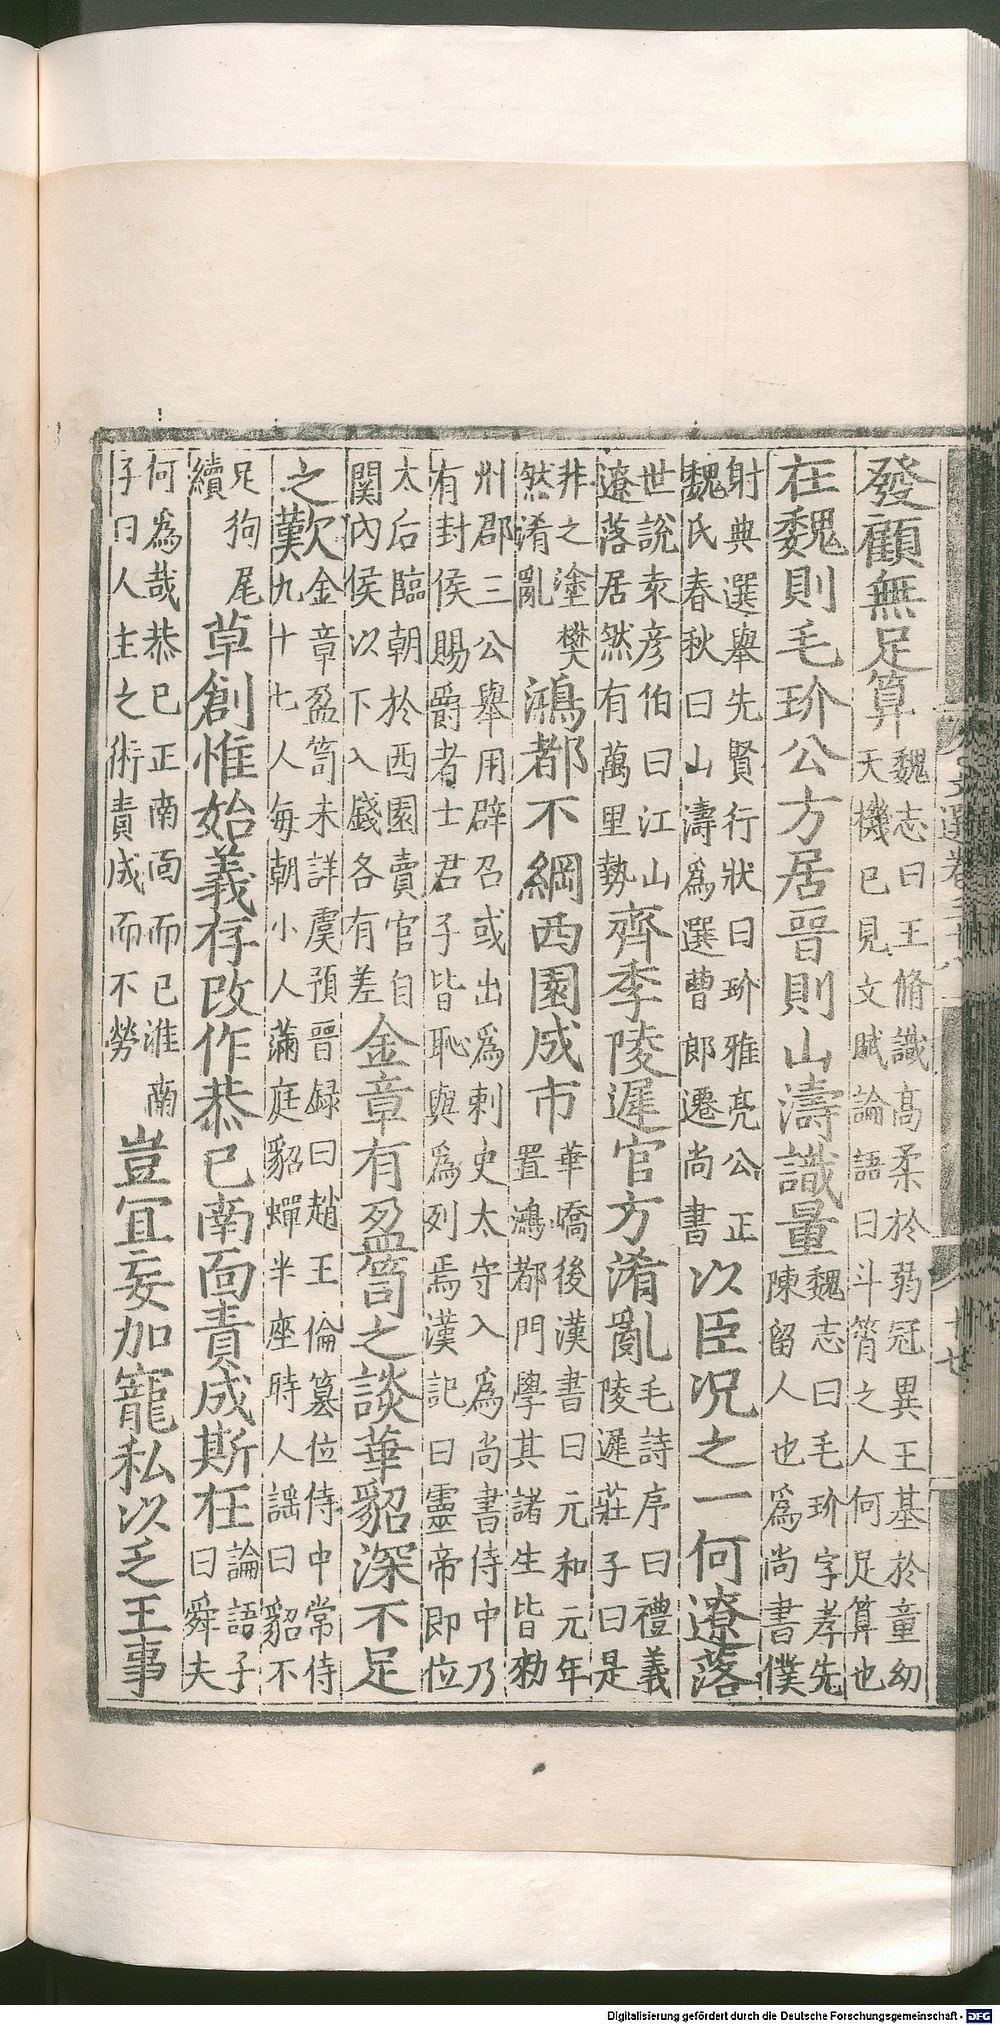 發顧無足算魏志曰王脩識髙柔於弱冠異王基於童㓜
天機已見文賦論語曰斗筲之人何足算也
在魏則毛玠公方居晉則山濤識量魏志曰毛玠字孝先
陳留人也爲尚書僕
射典選舉先賢行狀曰玠雅亮公正
魏氏春秋曰山濤爲選曹郎遷尚書以臣况之一何遼落
世說袁彦伯曰江山
遼落居然有萬里勢齊季陵遲官方淆亂毛詩序曰禮義
陵遲莊子曰是
非之塗樊
然淆亂鴻都不綱西園成市華嶠後漢書曰元和元年
置鴻都門學其諸生皆勑
州郡三公舉用辟召或出爲刺史太守入爲尚書侍中乃
有封侯賜爵者士君子皆恥與爲列焉漢記曰靈帝即位
太后臨朝於西園賣官自
關內侯以下入錢各有差金章有盈笥之談華貂深不足
之歎金章盈笥未詳虞預晉録曰趙王倫篡位侍中常侍
九十七人每朝小人滿庭貂蟬半座時人謡曰貂不
足狗尾
續草創惟始義存改作恭已南靣責成斯在論語子
曰舜夫
何爲哉恭已正南靣而已淮南
子曰人主之術責成而不勞豈宜妄加寵私以乏王事
文選卷三十八
廿
Digitalisierung gefördert durch die Deutsche Forschungsgemeinschaft - DFG